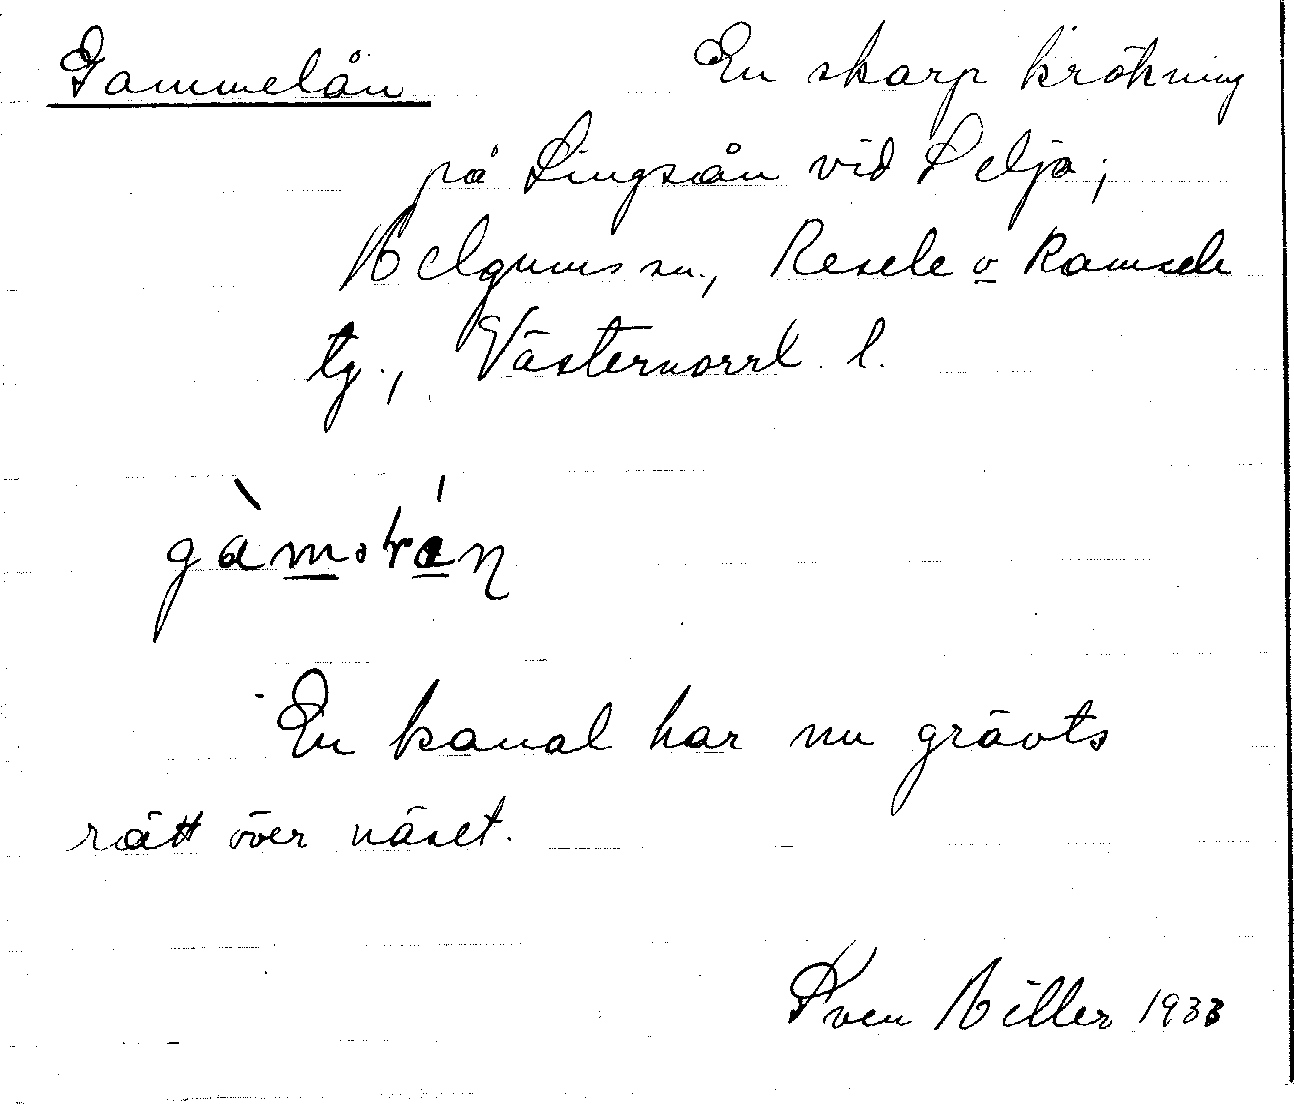 Gammelån En skarp krökning
på Lingsån vid Selja;
Helgums sn., Resele o Ramsele
tg., Västernorrl. l.
En kanal har nu grävts
rätt över näset.
Sven Hiller 1933